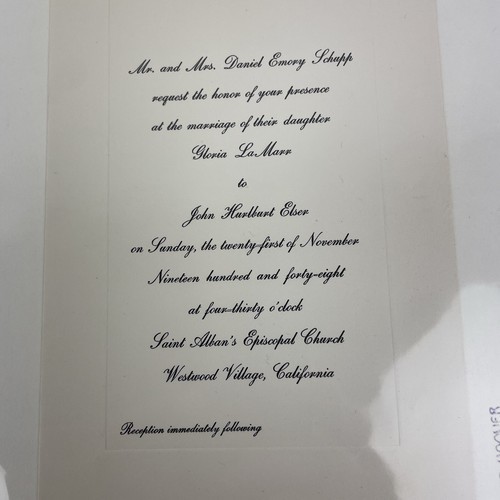 Mr. and Mrs. Daniel Emory Schupp
request the honor of your presence
at the marriage of their daughter
Gloria LaMarr
to
John Hurlburt Elser
on Sunday, the twenty-first of November
Nineteen hundred and forty-eight
at four-thirty o'clock
Saint Alban's Episcopal Church
Westwood Village, California
Reception immediately following